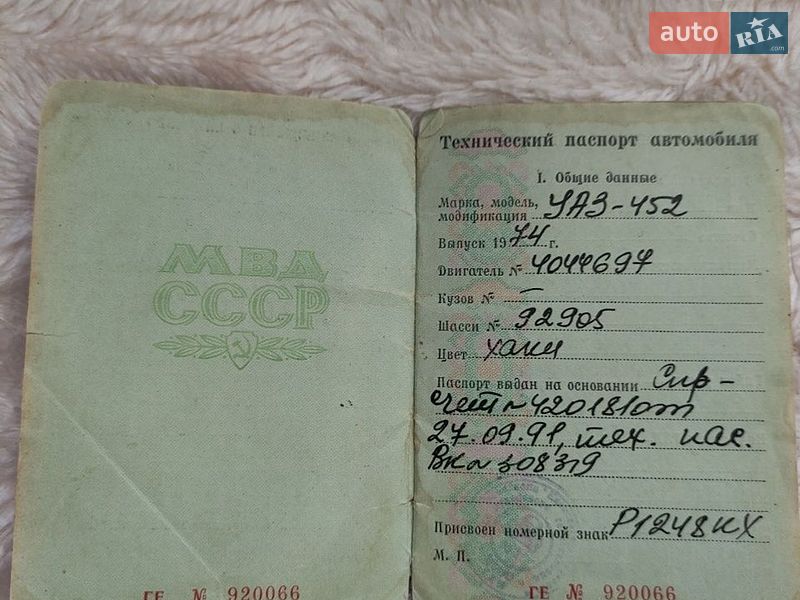 auto RIA .com
МВД
СССР
ГЕ № 920066
Технический паспорт автомобиля
I. Общие данные
Марка, модель, модификация УАЗ-452
Выпуск 1974 г.
Двигатель № 4044697
Кузов № –
Шасси № 92905
Цвет хаки
Паспорт выдан на основании Спр-
счет № 420181 от
27.09.91, тех. пас.
ВК № 308319
Присвоен номерной знак Р1248КХ
М. П.
ГЕ № 920066